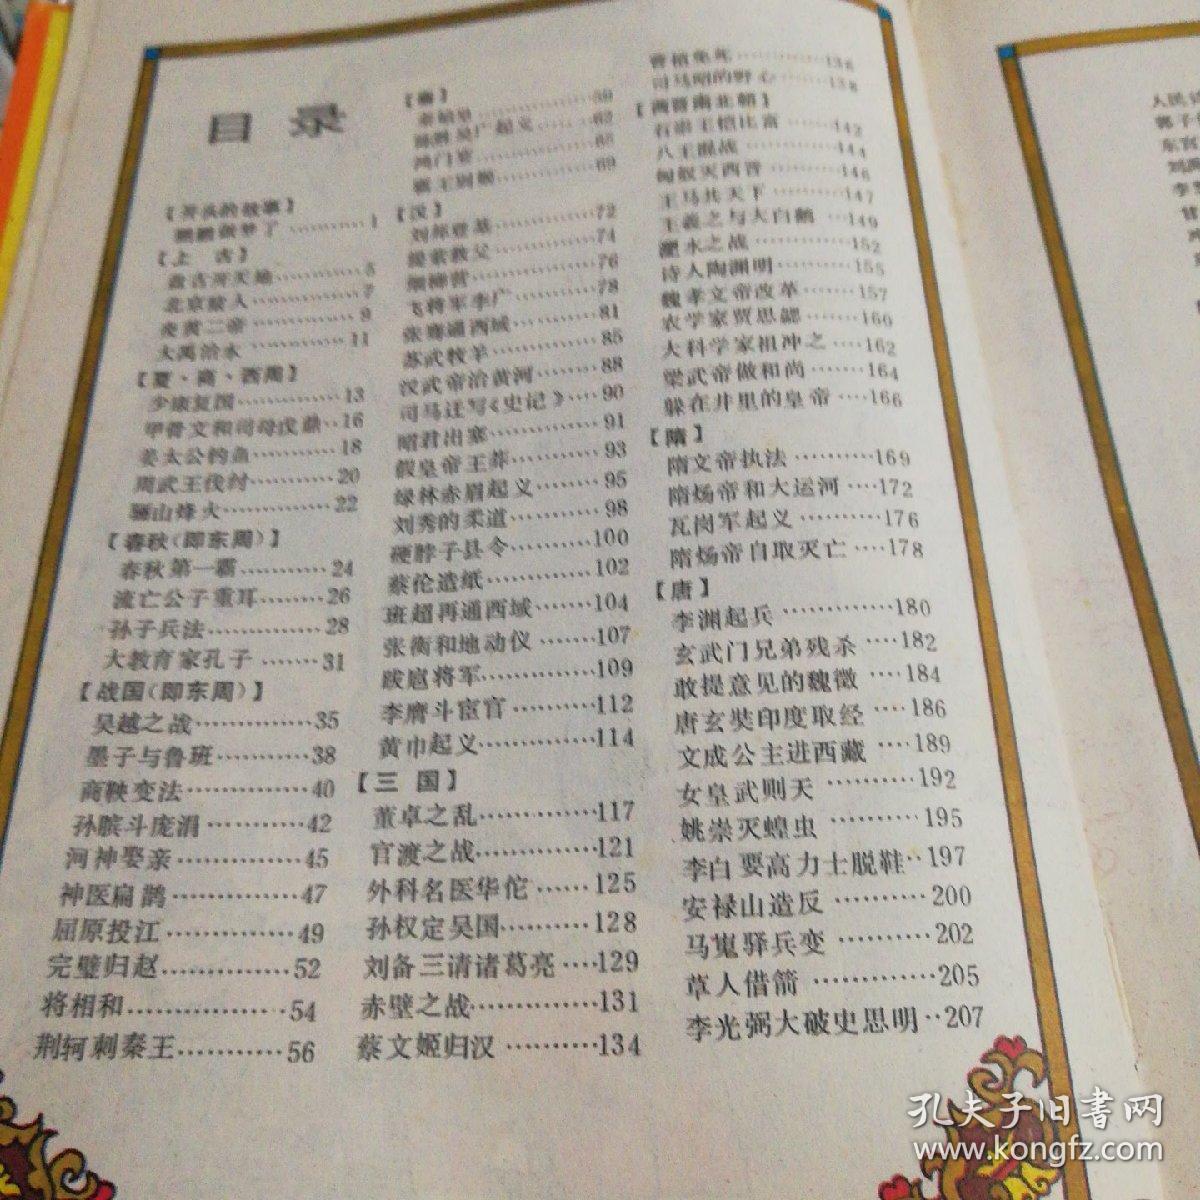 目录
【开头的故事】
刚刚做梦了…………1
【上 古】
盘古开天地…………5
北京猿人…………7
炎黄二帝…………9
大禹治水…………11
【夏、商、西周】
少康复国…………13
甲骨文和司母戊鼎…16
姜太公钓鱼…………18
周武王伐纣…………20
骊山烽火…………22
【春秋(即东周)】
春秋第一霸…………24
流亡公子重耳………26
孙子兵法…………28
大教育家孔子………31
【战国(即东周)】
吴越之战…………35
墨子与鲁班…………38
商鞅变法…………40
孙膑斗庞涓…………42
河神娶亲…………45
神医扁鹊…………47
屈原投江…………49
完璧归赵…………52
将相和…………54
荆轲刺秦王…………56
【秦】
秦始皇…………59
陈胜吴广起义………62
鸿门宴…………65
霸王别姬…………69
【汉】
刘邦登基…………72
缇萦救父…………74
细柳营…………76
飞将军李广…………78
张骞通西域…………81
苏武牧羊…………85
汉武帝治黄河………88
司马迁写《史记》…90
昭君出塞…………91
假皇帝王莽…………93
绿林赤眉起义………95
刘秀的柔道…………98
硬脖子县令…………100
蔡伦造纸…………102
班超再通西域………104
张衡和地动仪………107
跋扈将军…………109
李膺斗宦官…………112
黄巾起义…………114
【三 国】
董卓之乱…………117
官渡之战…………121
外科名医华佗………125
孙权定吴国…………128
刘备三请诸葛亮……129
赤壁之战…………131
蔡文姬归汉…………134
曹植免死…………136
司马昭的野心………138
【两晋南北朝】
石崇王恺比富………142
八王混战…………144
匈奴灭西晋…………146
王马共天下…………147
王羲之与大白鹅…149
淝水之战…………152
诗人陶渊明…………155
魏孝文帝改革………157
农学家贾思勰………160
大科学家祖冲之……162
梁武帝做和尚………164
躲在井里的皇帝……166
【隋】
隋文帝执法…………169
隋炀帝和大运河……172
瓦岗军起义…………176
隋炀帝自取灭亡……178
【唐】
李渊起兵…………180
玄武门兄弟残杀……182
敢提意见的魏徵……184
唐玄奘印度取经……186
文成公主进西藏……189
女皇武则天…………192
姚崇灭蝗虫…………195
李白要高力士脱鞋…197
安禄山造反…………200
马嵬驿兵变…………202
草人借箭…………205
李光弼大破史思明…207
人民
郭子
东宫
李
孔夫子旧书网
www.kongfz.com